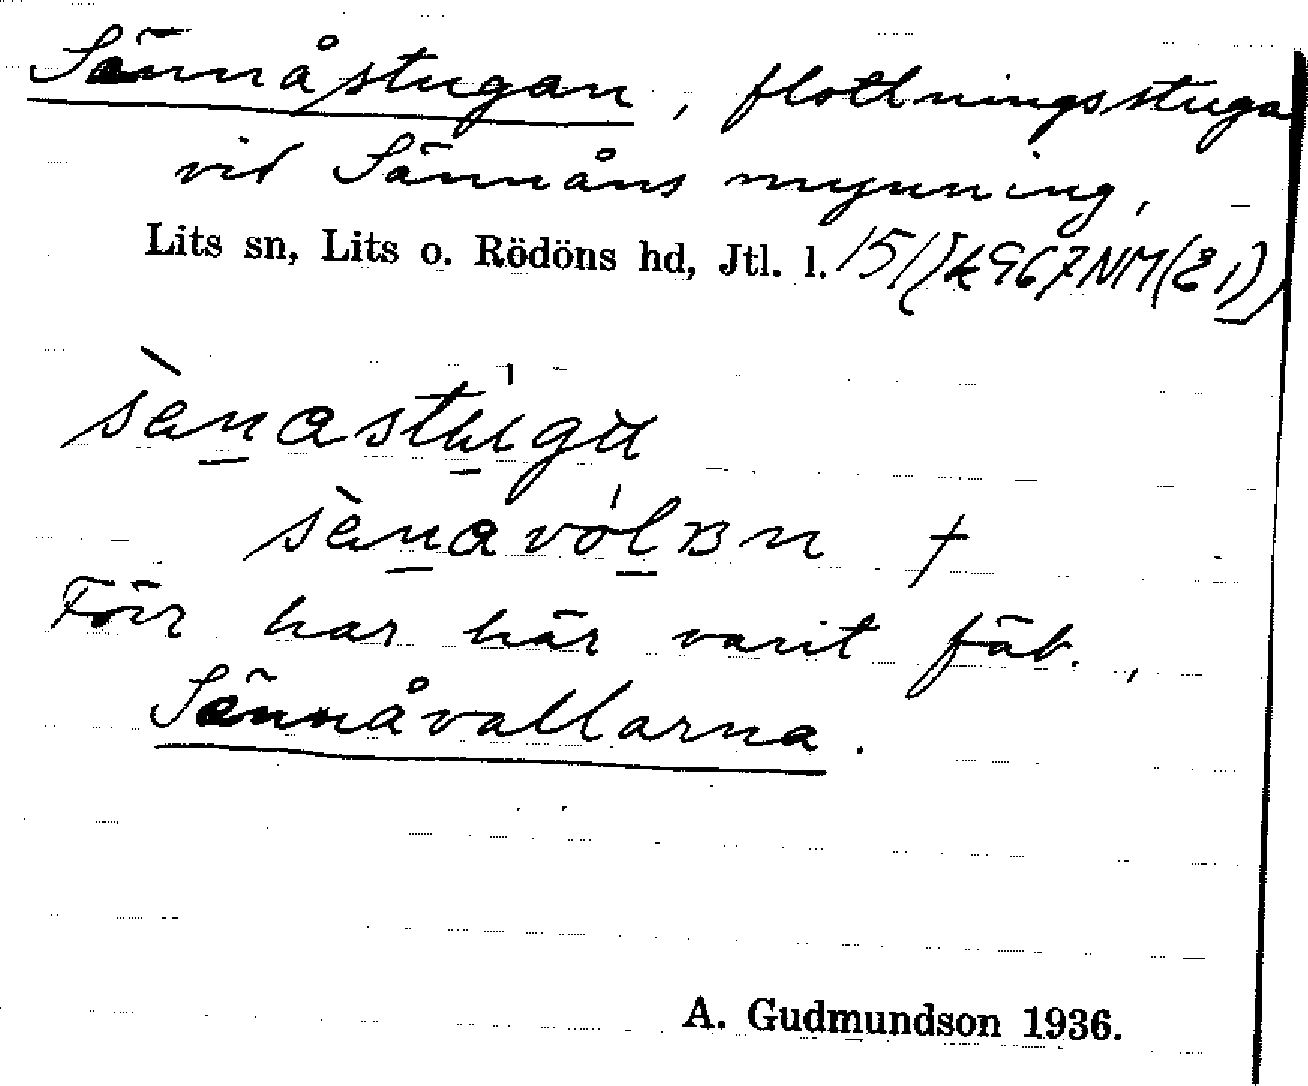 Sännåstugan, flottningsstuga
vid Sännåns mynning,
Lits sn, Lits o. Rödöns hd, Jtl. l.
Förr har här varit fäb.,
Sännåvallarna.
A. Gudmundson 1936.